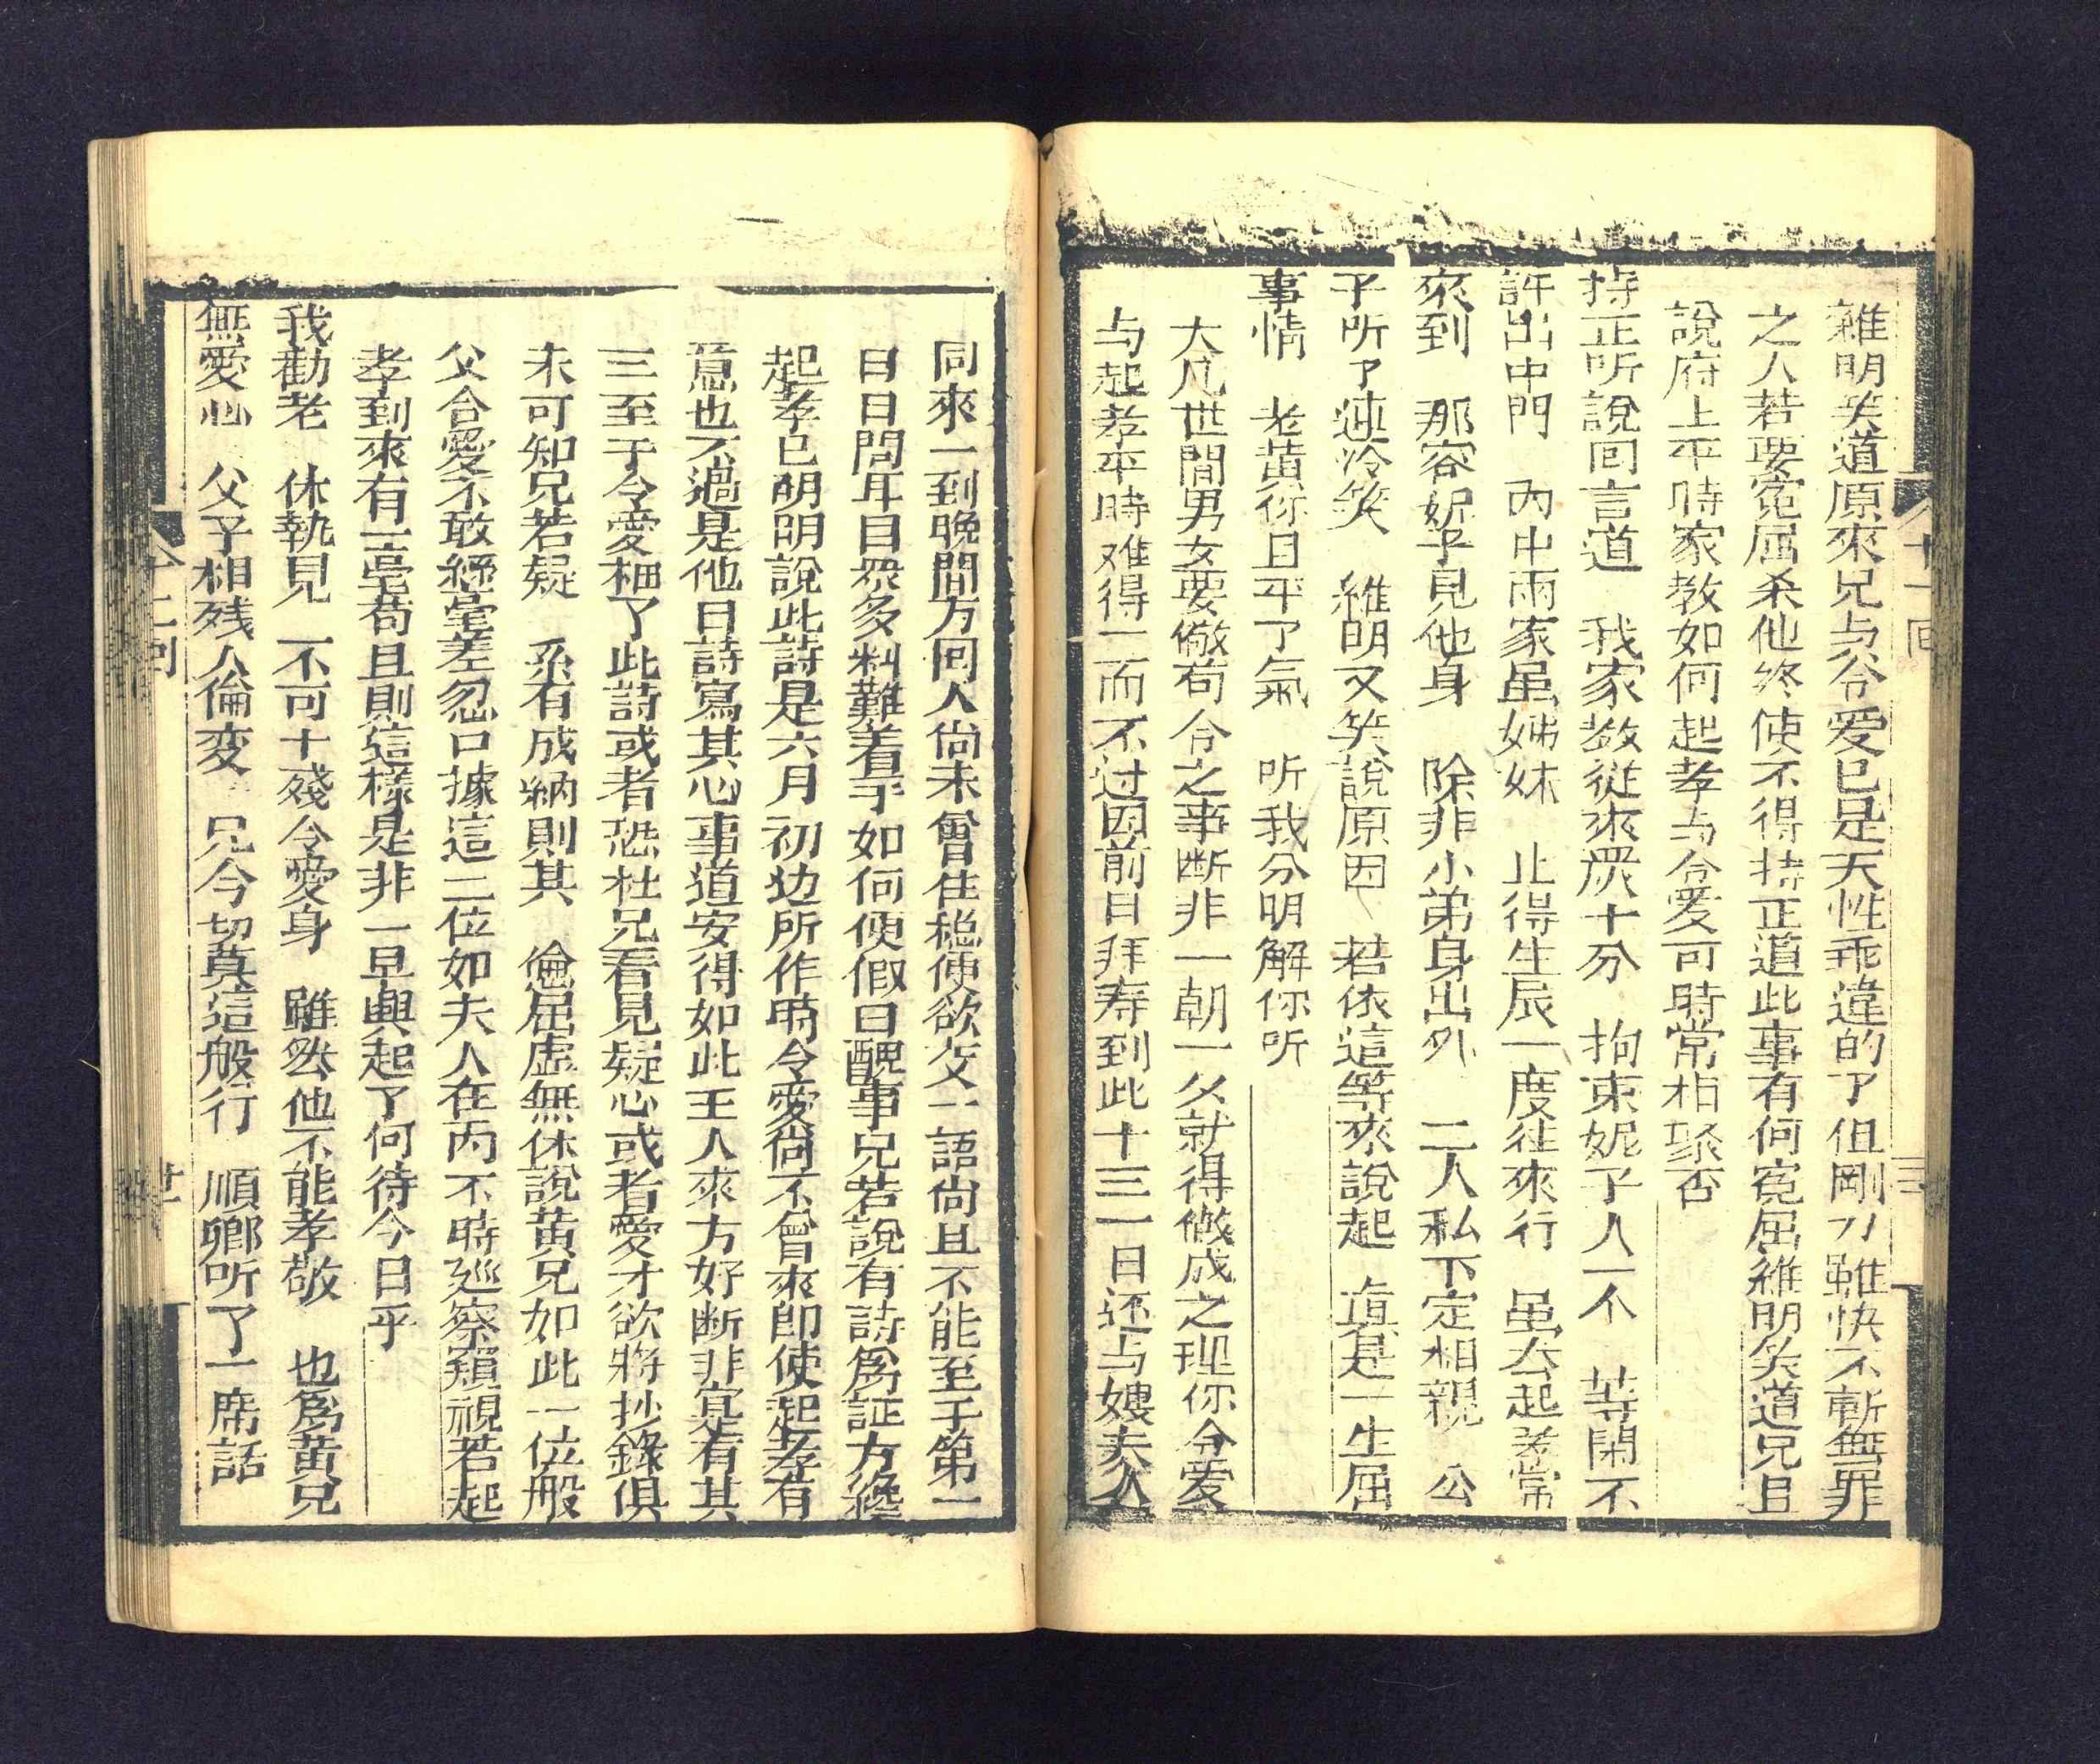 維明笑道原來兄与令爱已是天性乖違的了但剛刀雖快不斬無罪
之人若要寃屈杀他終使不得持正道此事有何寃屈維明笑道兄且
說府上平時家教如何起孝与令爱可時常相聚否
持正听說回言道　我家教從來嚴十分　拘束妮子人一个　等閑不
許出中門　內中兩家虽姊妹　止得生辰一度徃來行　虽公起孝常
來到　那容妮子見他身　除非小弟身出外　二人私下定相親　公
子听了連冷笑　維明又笑說原因　若依這等來說起　真是一生屈
事情　老黃你且平了氣　听我分明解你听
大凡世間男女要儆苟合之事断非一朝一夕就得儆成之理你令爱
与起孝平時难得一面不过因前日拜寿到此十三一日还与嫂夫人
同來一到晚間方回人尙未曾住穏便欲交一語尙且不能至于第一
日日間耳目眾多料難着手如何便假曰醜事兄若說有詩爲証方纔
起孝已明明說此詩是六月初边所作時令愛尙不曾來卽使起孝有
意也不過是他日詩寫其心事道安得如此王人來方好断非寔有其
三至于令愛柙了此詩或者恐杜兄看見疑心或者愛才欲將抄錄俱
未可知兄若疑　系有成納則其　寃屈虛無休說黃兄如此一位般
父合愛不敢經毫差忽口據這二位如夫人在內不時廵察窺視若起
孝到來有一毫苟且則這樣是非一早興起了何待今日乎
我勸老　休執見　不可十殘令愛身　雖然他不能孝敬　也爲黃兄
無愛心　父子相残人倫变　兄今切莫這般行　順卿听了一席話